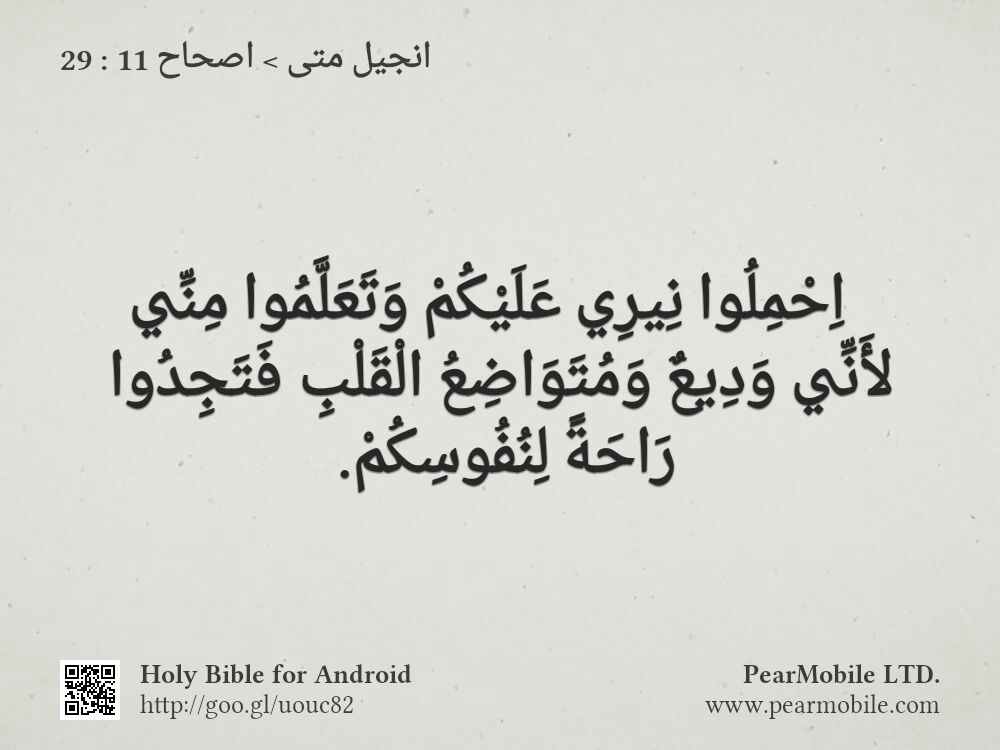 انجيل متى > اصحاح 11 : 29
اِحْمِلُوا نِيرِي عَلَيْكُمْ وَتَعَلَّمُوا مِنِّي
لأَنِّي وَدِيعٌ وَمُتَوَاضِعُ الْقَلْبِ فَتَجِدُوا
رَاحَةً لِنُفُوسِكُمْ.
Holy Bible for Android
http://goo.gl/uouc82
PearMobile LTD.
www.pearmobile.com